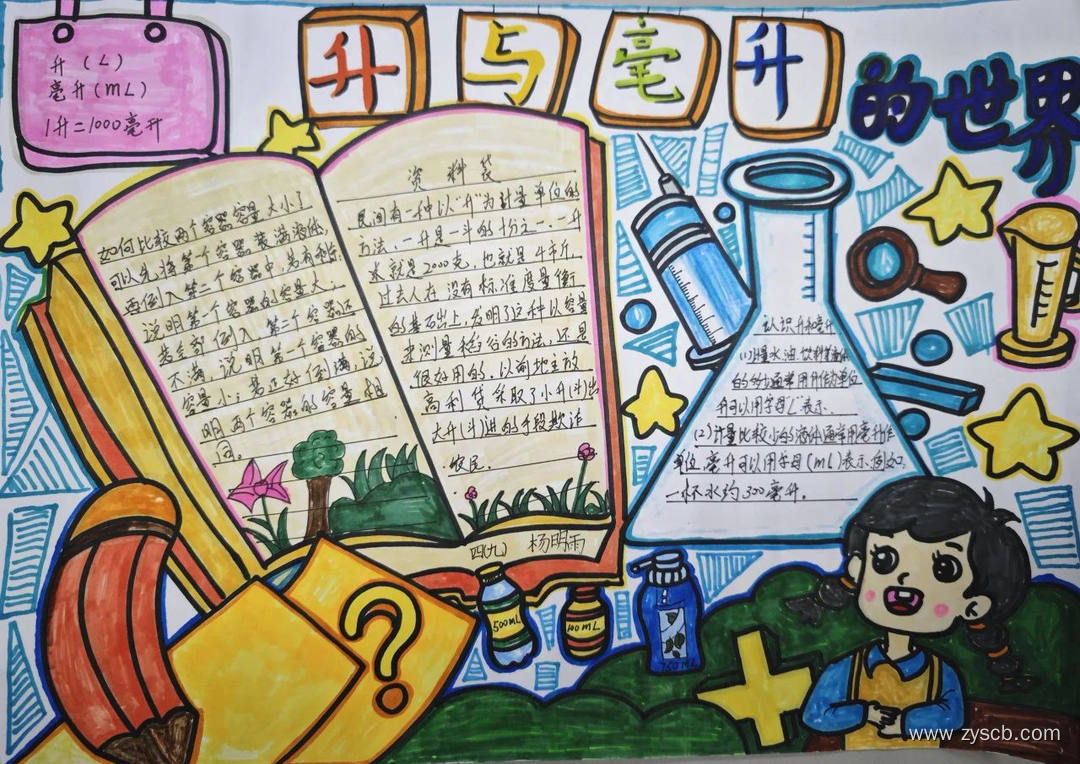 升与毫升
的世界
升（L）
毫升（mL）
1升=1000毫升
如何比较两个容器容量大小？
可以先将第一个容器装满液体，
再倒入第二个容器中，若有剩余，
说明第一个容器的容量大；
若全部倒入第二个容器还
不满，说明第一个容器的
容量小；若正好倒满，说
明两个容器的容量相
同。
资料袋
民间有一种以“升”为计量单位的
方法，一升是一斗的十分之一，一升
米就是2000克，也就是4市斤，
过去人在没有标准度量衡
的基础上，发明了这种以容量
来测量稻谷的方法，还是
很好用的，以前地主放
高利贷采取了小升（斗）出
大升（斗）进的手段欺诈
农民。
四（九） 杨明雨
认识升和毫升
（1）计量水、油、饮料等液体
的多少，通常用升作为单位
升可以用字母“L”表示.
（2）计量比较少的液体，通常用毫升作
单位，毫升可以用字母（mL）表示.例如，
一杯水约300毫升.
?
500mL
100mL
750mL
www.zyscb.com